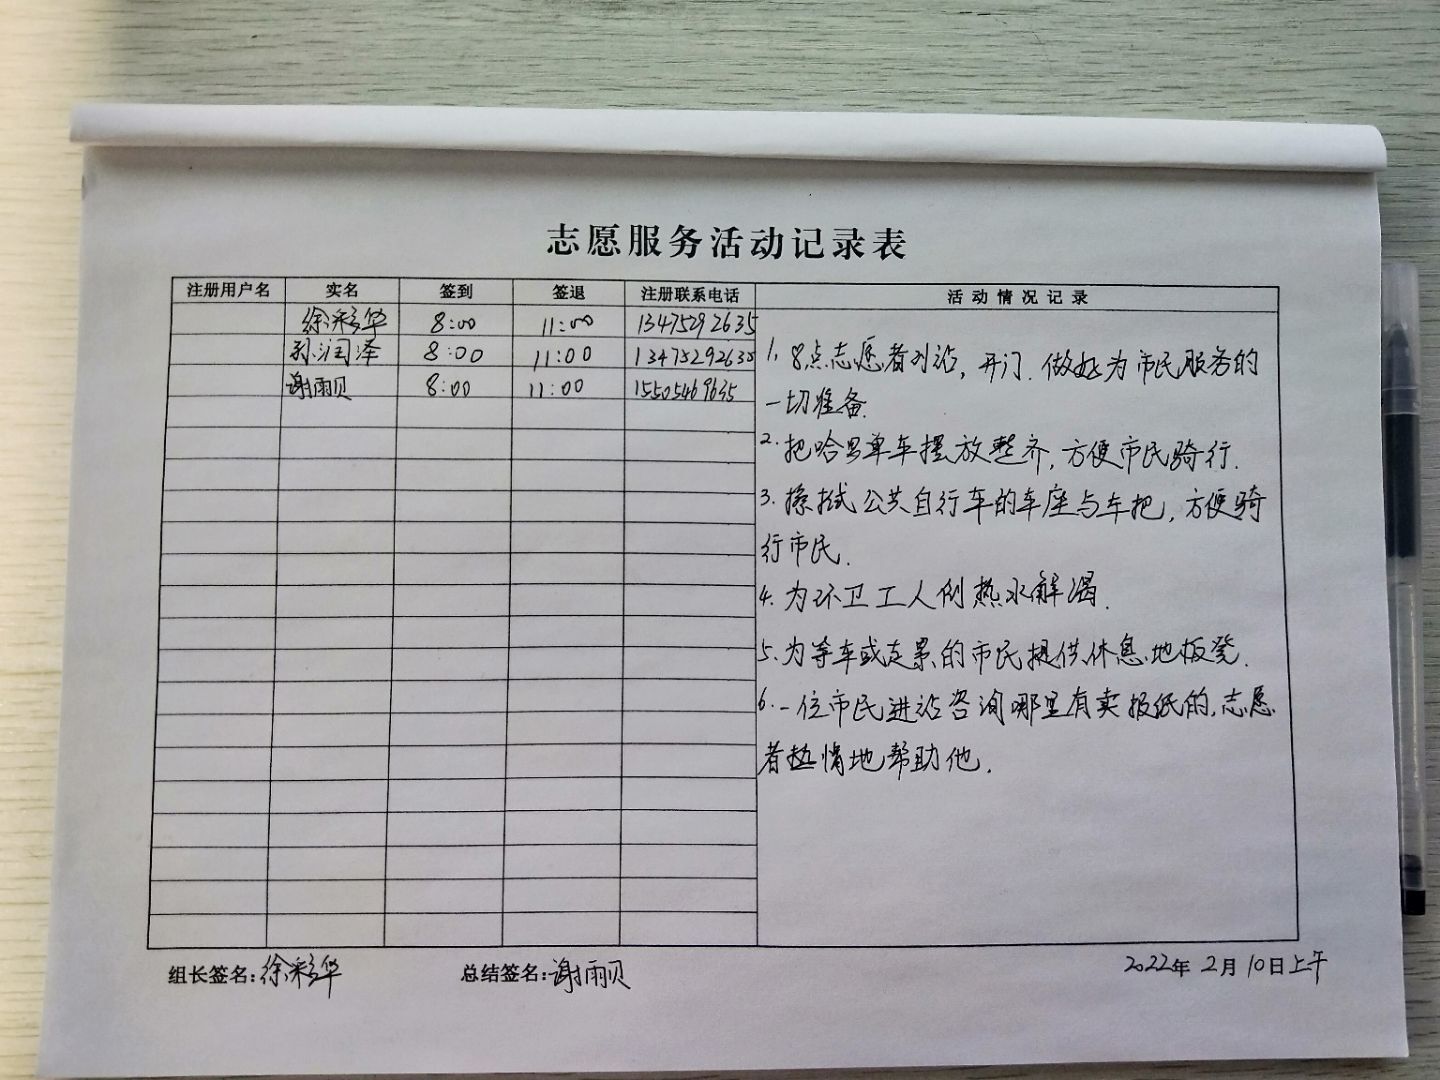 志愿服务活动记录表
注册用户名 实名 签到 签退 注册联系电话 活动情况记录
徐彩华 8:00 11:00 13475292635
孙润泽 8:00 11:00 13475292635
谢雨贝 8:00 11:00 15505469645
1. 8点志愿者到站，开门.做好为市民服务的
一切准备.
2. 把哈罗单车摆放整齐,方便市民骑行.
3. 擦拭公共自行车的车座与车把,方便骑
行市民.
4. 为环卫工人倒热水解渴.
5. 为等车或走累的市民提供休息地板凳.
6. 一位市民进站咨询哪里有卖报纸的,志愿
者热情地帮助他.
组长签名:徐彩华 总结签名:谢雨贝 2022年2月10日上午